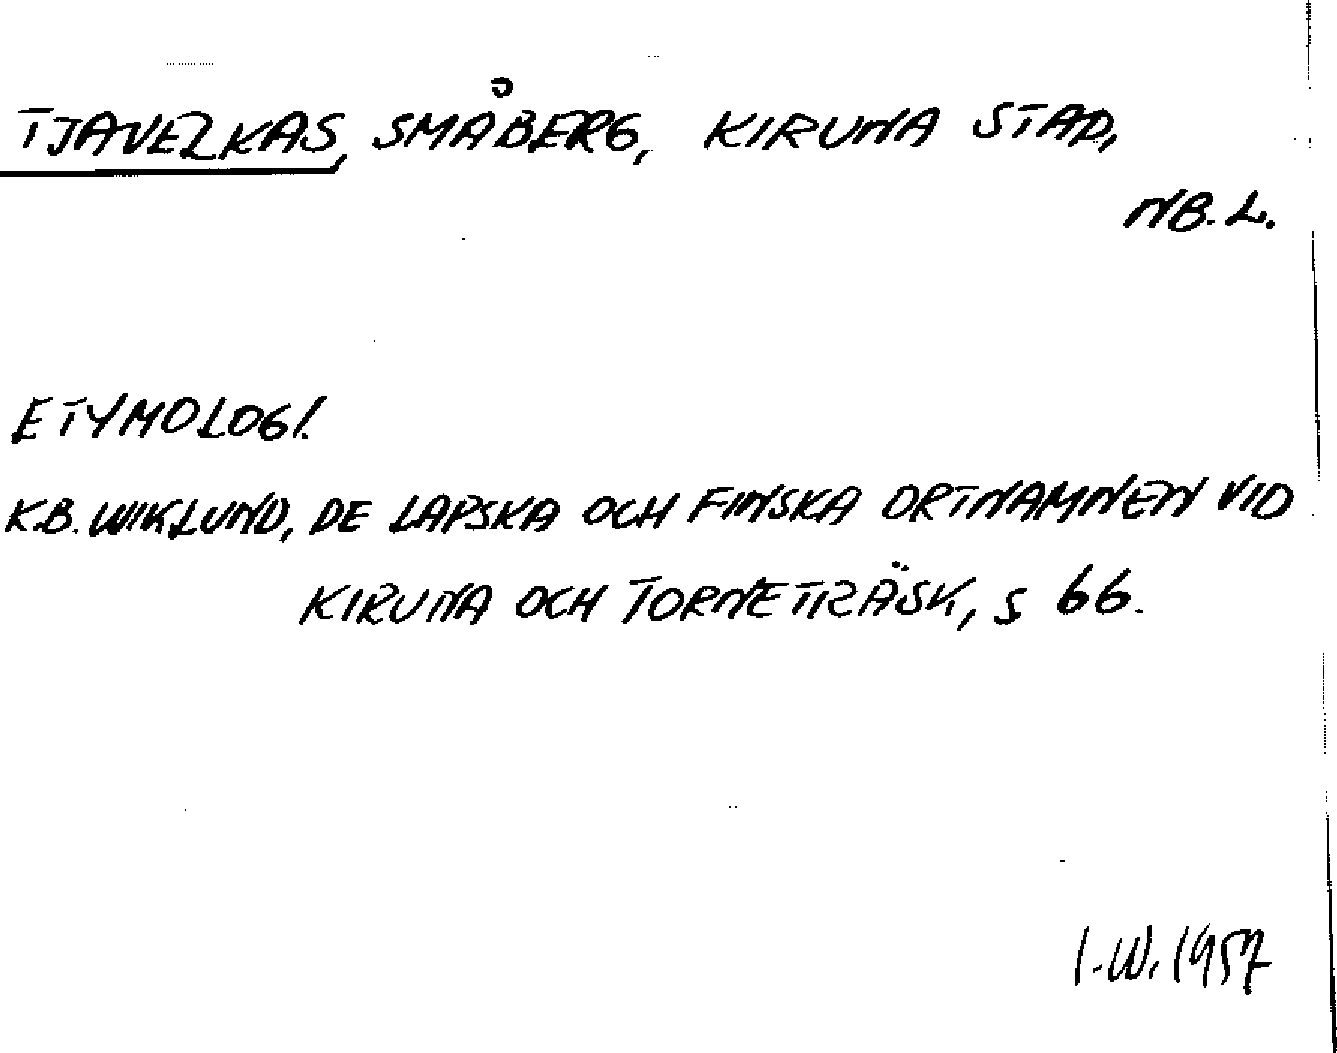 TJAVELKAS, SMÅBERG, KIRUNA STAD,
NB. L.
ETYMOLOGI.
K.B. WIKLUND, DE LAPSKA OCH FINSKA ORTNAMNEN VID
KIRUNA OCH TORNETRÄSK, S 66.
I.W. 1957